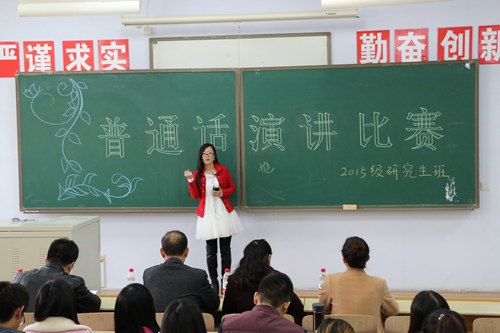 严谨求实
勤奋创新
普通话演讲比赛
2015级研究生班